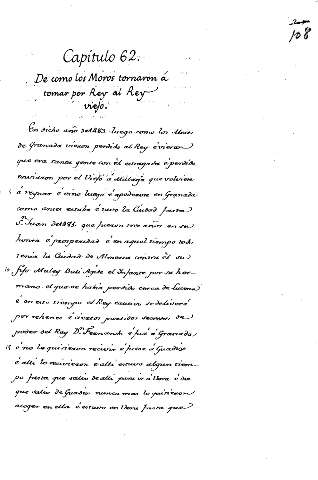 108
Capítulo 62.
De como los Moros tornaron á
tomar por Rey al Rey
viejo.
En dicho año de 1483 luego como los Moros
de Granada vieron perdido al Rey é vieron
que era tanta gente con él estragada é perdida
enviaron por el Viejo á Málaga que volviese
5 á reynar é vino luego é apoderose en Granada
como antes estaba é tuvo la Ciudad fasta
Sn. Juan de 1485. que fueron tres años en su
honra é prosperidad é en aquel tiempo
tenia la Ciudad de Almeria contra él su
10 fijo Muley Buli Agix el Infante por su her-
mano. el que se habia perdido cerca de Lucena
é en este tiempo el Rey cautivo se deliberó
por rehenes é ciertos partidos secretos de
poder del Rey Dn. Fernando é fué á Granada
15 é no lo quisieron recivir é fuese á Guadix
é alli lo recivieron é alli estuvo algun tiem-
po fasta que salió de alli para ir á Vera é de
que salió de Guadix nunca mas lo quisieron
acoger en ella é estuvo en Vera fasta que